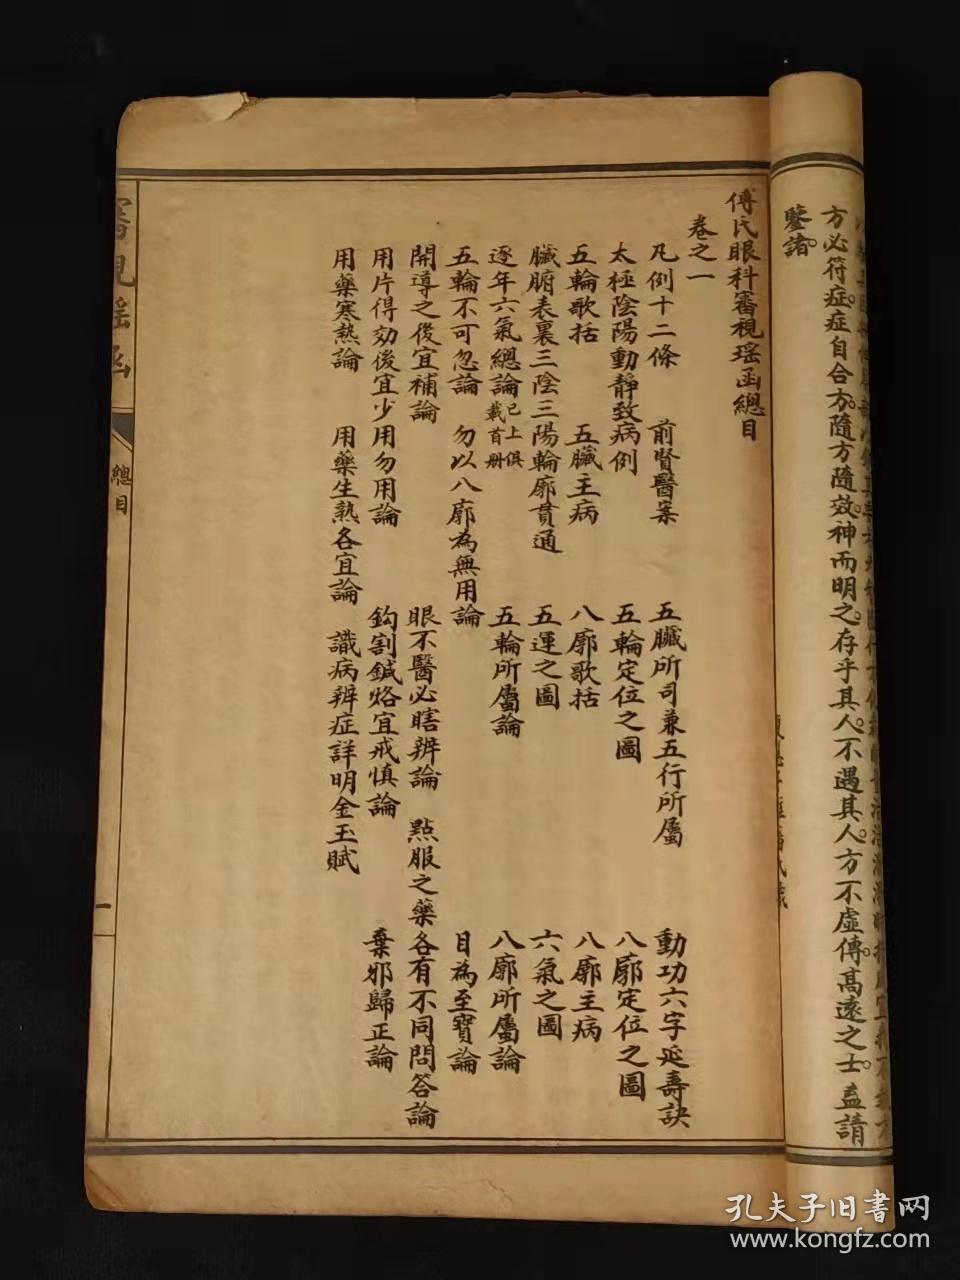 方必符症。症自合方。隨方隨效。神而明之。存乎其人。不遇其人。方不虛傳。高遠之士。盍請
鑒諸。
傅氏眼科審視瑤函總目
卷之一
凡例十二條 前賢醫案 五臟所司兼五行所屬 動功六字延壽訣
太極陰陽動靜致病例 五輪定位之圖 八廓定位之圖
五輪歌括 五臟主病 八廓歌括 八廓主病
臟腑表裏三陰三陽輪廓貫通 五運之圖 六氣之圖
逐年六氣總論 已上俱載首册 五輪所屬論 八廓所屬論
五輪不可忽論 勿以八廓為無用論 目為至寶論
開導之後宜補論 眼不醫必瞎辨論 點服之藥各有不同問答論
用片得効後宜少用勿用論 鈎割鍼烙宜戒慎論 棄邪歸正論
用藥寒熱論 用藥生熟各宜論 識病辨症詳明金玉賦
審視瑤函
總目
一
孔夫子旧书网
www.kongfz.com